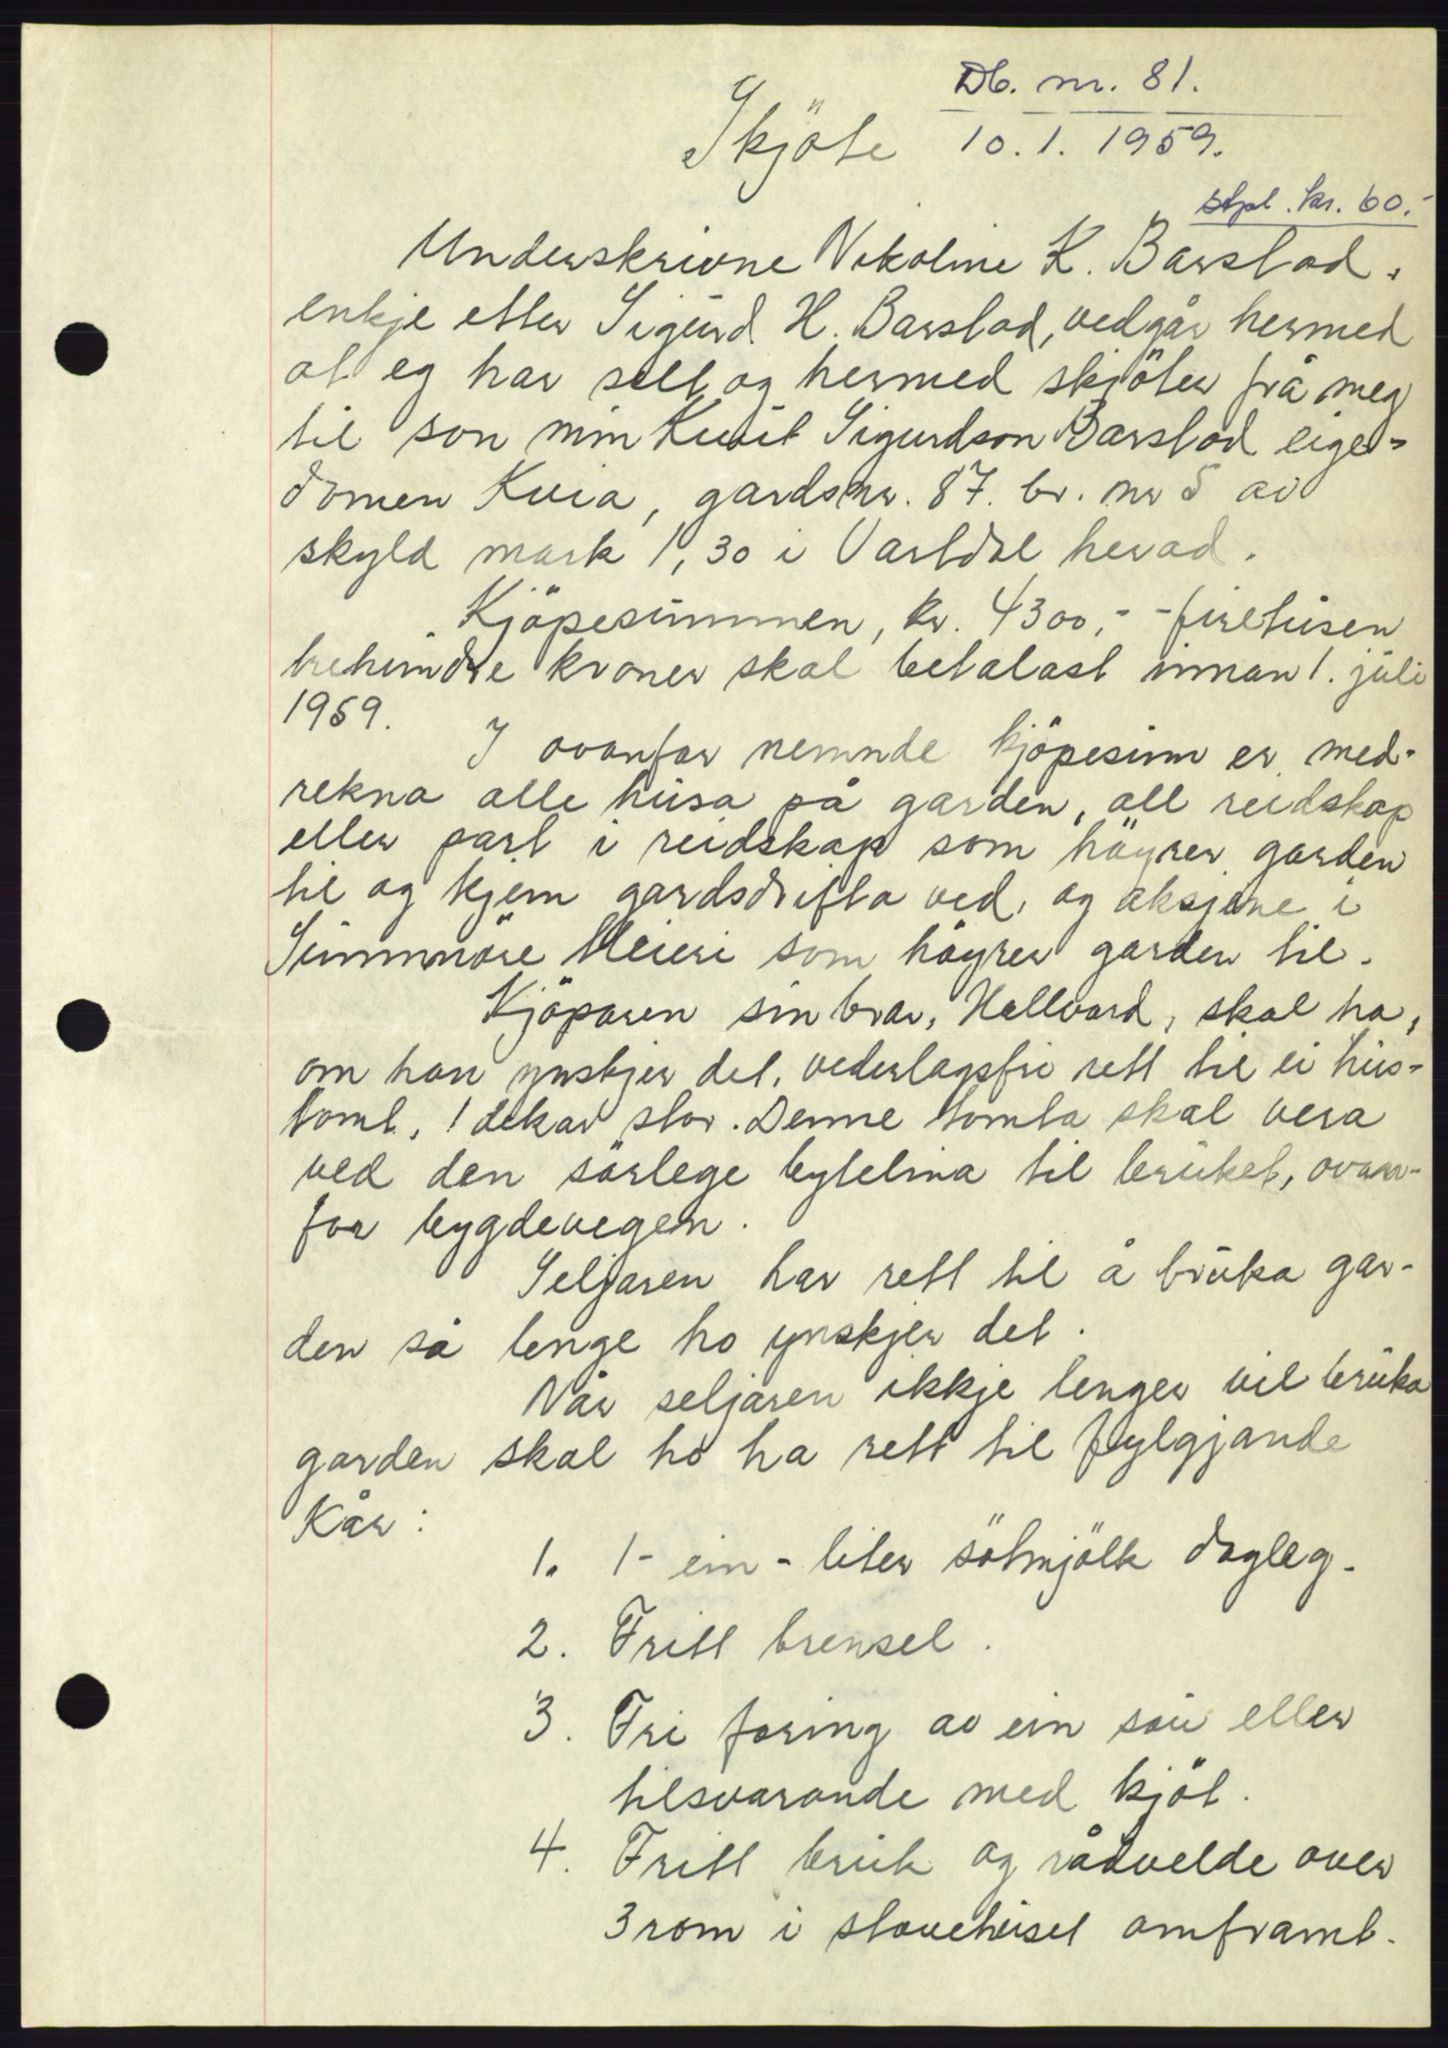 Db. nr. 81.
Skjöte 10.1. 1959.
stpl. kr. 60.-
Underskrivne Nikoline K. Barstad,
enkje etter Sigurd H. Barstad, vedgår hermed
at eg har selt og hermed skjöter frå meg
til son min Knut Sigurdson Barstad eige-
domen Kvia, gardsnr. 87. br. nr 5 av
skyld mark 1,30 i Vartdal herad.
Kjöpesummen, kr. 4300,- -firetusen
trehundre kroner skal betalast innan 1. juli
1959.
I ovanfor nemnde kjöpesum er med-
rekna alle husa på garden, all reidskap
eller part i reidskap som höyrer garden
til og kjem gardsdrifta ved, og aksjene i
Sunnmöre Meieri som höyrer garden til.
Kjöparen sin bror, Hallvard, skal ha,
om han ynskjer det, vederlagsfri rett til ei hus-
tomt, 1 dekar stor. Denne tomta skal vera
ved den sörlege bytelina til bruket, ovan-
for bygdevegen.
Seljaren har rett til å bruka gar-
den så lenge ho ynskjer det.
Når seljaren ikkje lenger vil bruka
garden skal ho ha rett til fylgjande
Kår:
1. 1- ein - liter sötmjölk dagleg.
2. Fritt brensel.
3. Fri foring av ein sau eller
tilsvarande med kjöt.
4. Fritt bruk og rådvelde over
3 rom i stovehuset omframt.